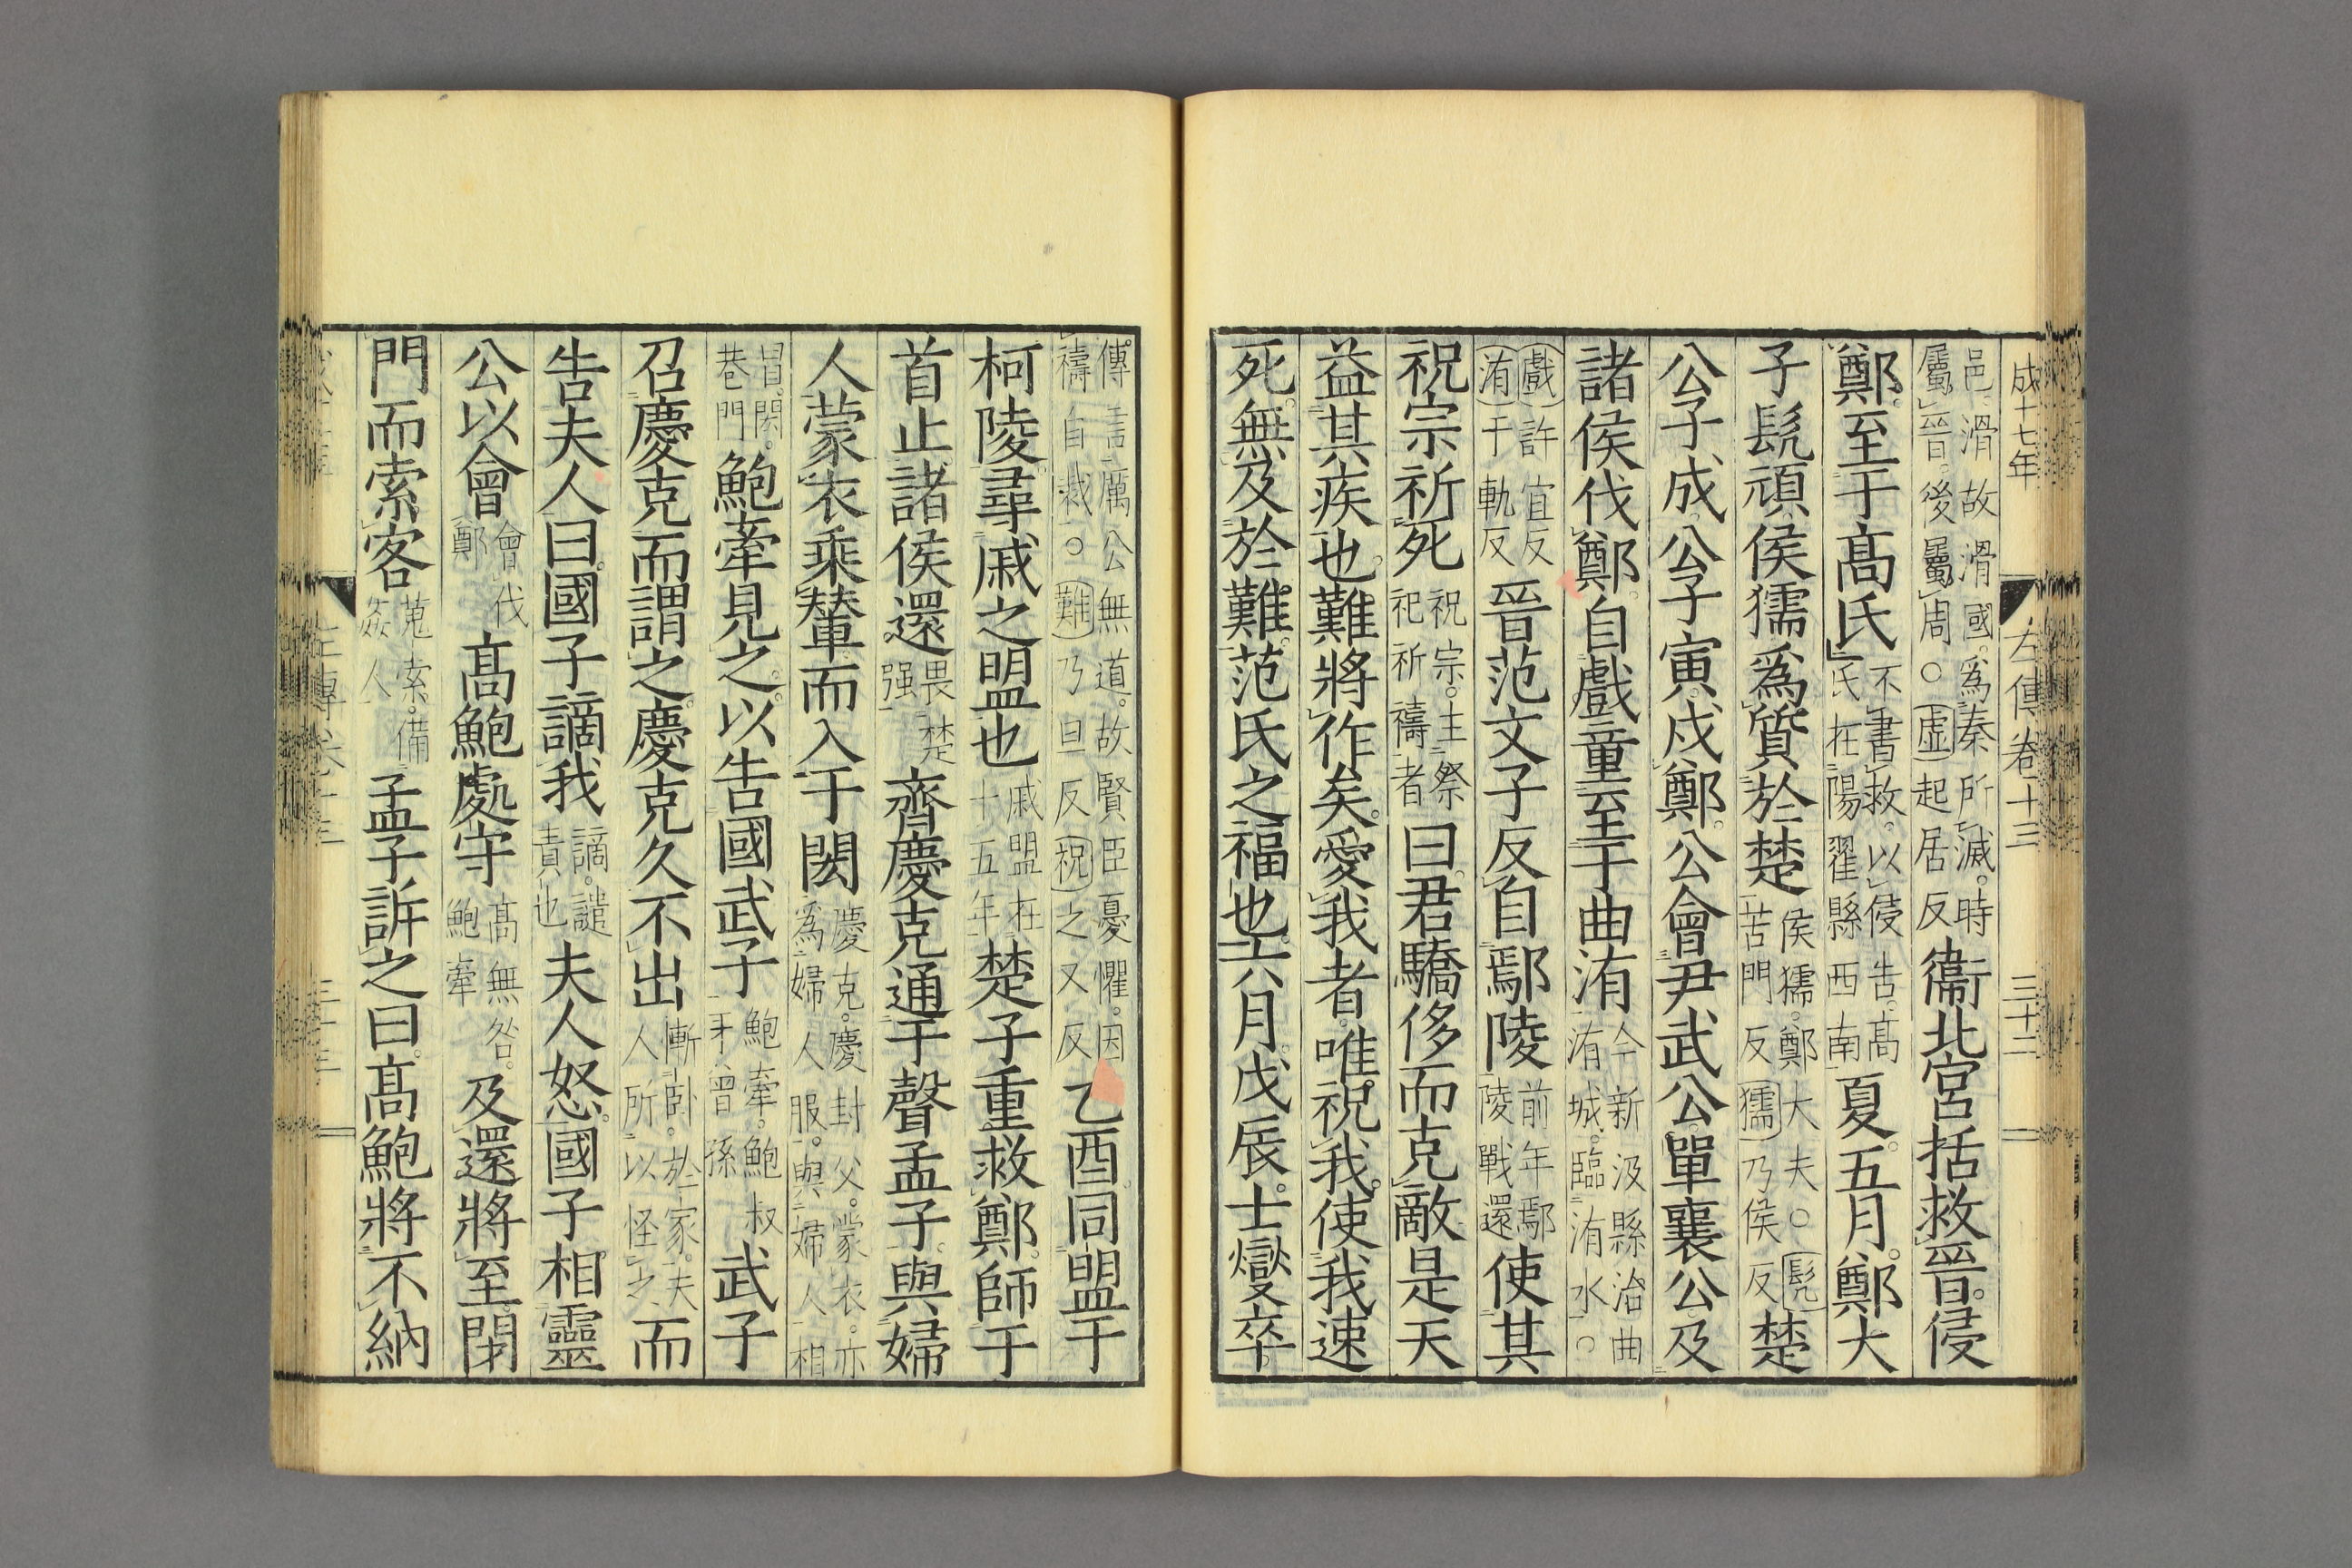 成十七年 左傳卷十三 三十二
邑滑故滑國爲秦所滅時
屬晉後屬周○虛起居反
衞北宮括救晉侵
鄭至于髙氏
不書救以侵告髙
氏在陽翟縣西南
夏五月鄭大
子髠頑侯獳爲質於楚
侯獳鄭大夫○髠
苦門反獳乃侯反
楚
公子成公子寅戍鄭公會尹武公單襄公及
諸侯伐鄭自戲童至于曲洧
今新汲縣治曲
洧城臨洧水○
戲許宜反
洧于軌反
晉范文子反自鄢陵
前年鄢
陵戰還
使其
祝宗祈死
祝宗主祭
祀祈禱者
曰君驕侈而克敵是天
益其疾也難將作矣愛我者唯祝我使我速
死無及於難范氏之福也六月戊辰士燮卒
傳言厲公無道故賢臣憂懼因
禱自裁○難乃旦反祝之又反
乙酉同盟于
柯陵尋戚之盟也
戚盟在
十五年
楚子重救鄭師于
首止諸侯還
畏楚
强
齊慶克通于聲孟子與婦
人蒙衣乘輦而入于閎
慶克慶封父蒙衣亦
爲婦人服與婦人相
冒閎
巷門
鮑牽見之以告國武子
鮑牽鮑叔
牙曾孫
武子
召慶克而謂之慶克久不出
慚卧於家夫
人所以怪之
而
告夫人曰國子讁我
讁譴
責也
夫人怒國子相靈
公以會
會伐
鄭
髙鮑處守
髙無咎
鮑牽
及還將至閉
門而索客
蒐索備
姦人
孟子訴之曰髙鮑將不納